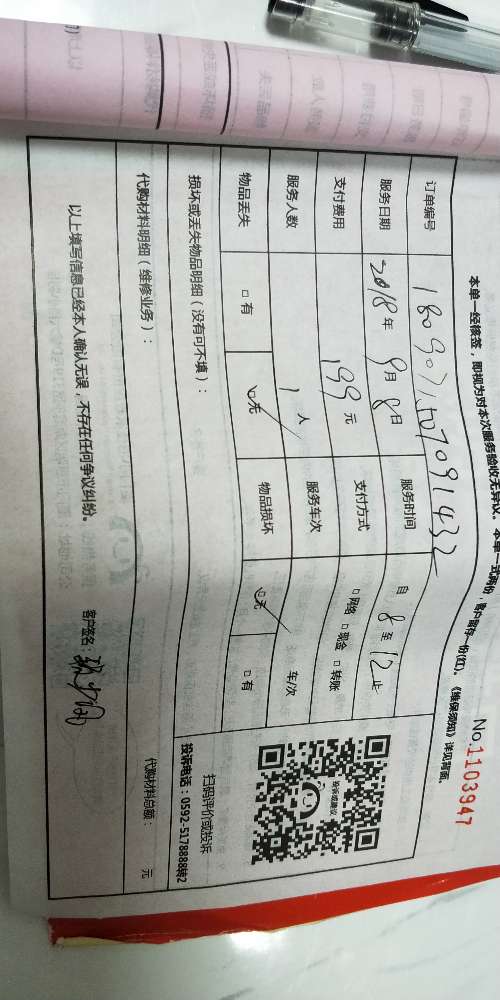 本单一经核签，即视为对本次服务验收无异议。本单一式两份，客户留存一份(红)。《维保须知》详见背面。
No.1103947
订单编号 1809071507091432
服务日期 2018年9月8日 服务时间 自8至12止
支付费用 199元 支付方式 □网络 □现金 □转账
服务人数 1人 服务车次 车/次
物品丢失 □有 ☑无 物品损坏 ☑无 □有
损坏或丢失物品明细（没有可不填）：
扫码评价或投诉
投诉电话：0592-5178888转2
代购材料明细（维修业务）：
代购材料总额： 元
以上填写信息已经本人确认无误，不存在任何争议纠纷。 客户签名：